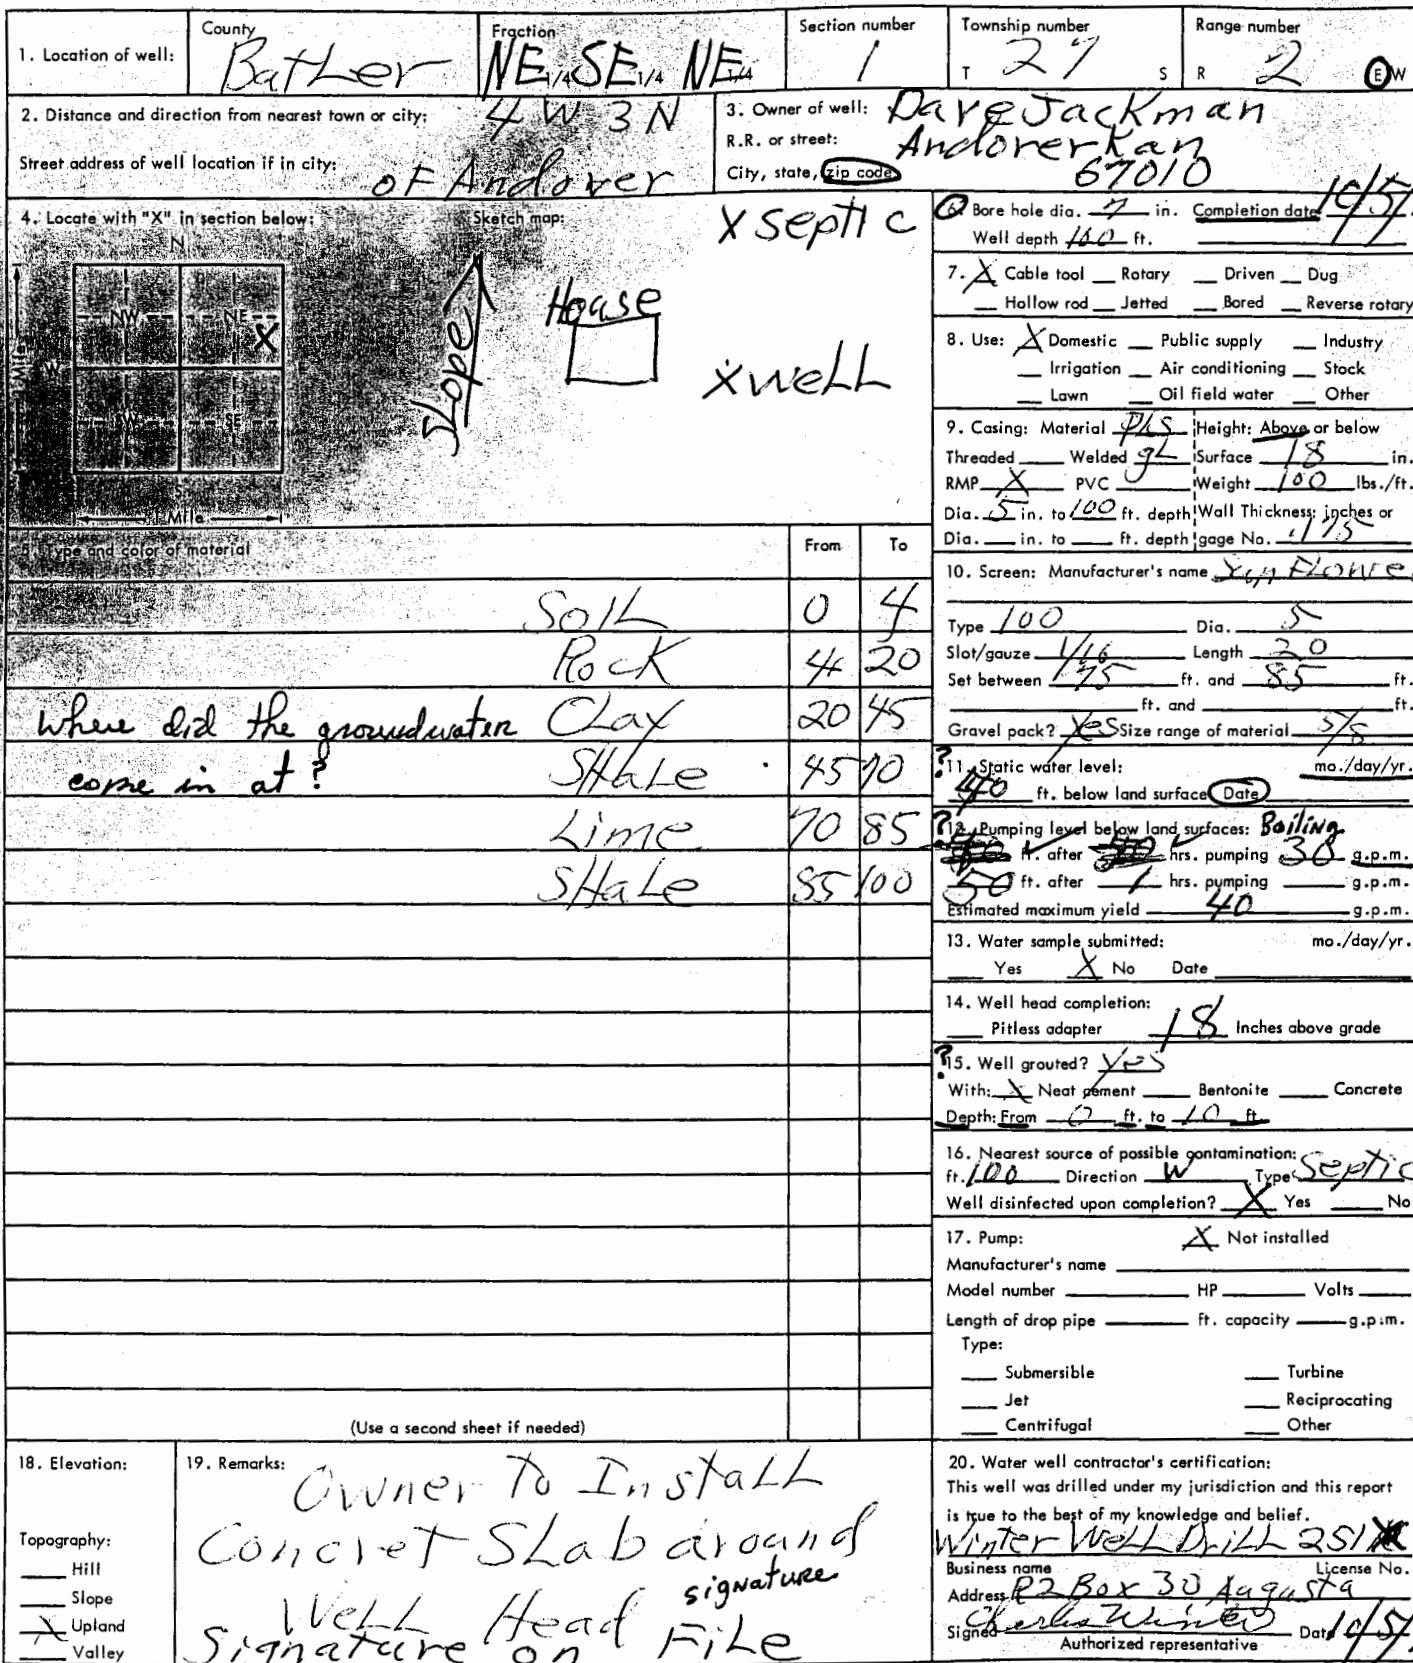 1. Location of well:
County
Butler
Fraction
NE 1/4 SE 1/4 NE 1/4
Section number
1
Township number
T 27 S
Range number
R 2 E W
2. Distance and direction from nearest town or city:
4 W 3 N
Street address of well location if in city:
oF Andover
3. Owner of well: Dave Jackman
R.R. or street: Andover Kan
City, state, zip code 67010
4. Locate with "X" in section below:
N
NW NE
X
W
SW SE
S
1 Mile
Sketch map:
X septic
House
Slope
X well
5. Type and color of material From To
Soil 0 4
Rock 4 20
Clay 20 45
Shale 45 70
Lime 70 85
Shale 85 100
where did the groundwater
come in at?
(Use a second sheet if needed)
6. Bore hole dia. 7 in. Completion date 10/5/
Well depth 100 ft.
7. X Cable tool Rotary Driven Dug
Hollow rod Jetted Bored Reverse rotary
8. Use: X Domestic Public supply Industry
Irrigation Air conditioning Stock
Lawn Oil field water Other
9. Casing: Material Pls Height: Above or below
Threaded Welded gL Surface 18 in.
RMP X PVC Weight 100 lbs./ft.
Dia. 5 in. to 100 ft. depth Wall Thickness: inches or
Dia. in. to ft. depth gage No. .175
10. Screen: Manufacturer's name Sun Flowe
Type 100 Dia. 5
Slot/gauze 1/16 Length 20
Set between 75 ft. and 85 ft.
ft. and ft.
Gravel pack? Yes Size range of material 5/8
? 11. Static water level: mo./day/yr.
40 ft. below land surface Date
? 12. Pumping level below land surfaces: Bailing
ft. after hrs. pumping 30 g.p.m.
50 ft. after 1 hrs. pumping g.p.m.
Estimated maximum yield 40 g.p.m.
13. Water sample submitted: mo./day/yr.
Yes X No Date
14. Well head completion:
Pitless adapter 18 Inches above grade
? 15. Well grouted? Yes
With: X Neat cement Bentonite Concrete
Depth: From 0 ft. to 10 ft.
16. Nearest source of possible contamination:
ft. 100 Direction W Type Septic
Well disinfected upon completion? X Yes No
17. Pump: X Not installed
Manufacturer's name
Model number HP Volts
Length of drop pipe ft. capacity g.p.m.
Type:
Submersible Turbine
Jet Reciprocating
Centrifugal Other
18. Elevation:
Topography:
Hill
Slope
X Upland
Valley
19. Remarks:
Owner To Install
Concret Slab around
Well Head signature
Signature on File
20. Water well contractor's certification:
This well was drilled under my jurisdiction and this report
is true to the best of my knowledge and belief.
Winter Well Drill 251
Business name License No.
Address R2 Box 30 Augusta
Signed Charles Winter Date 10/5/
Authorized representative